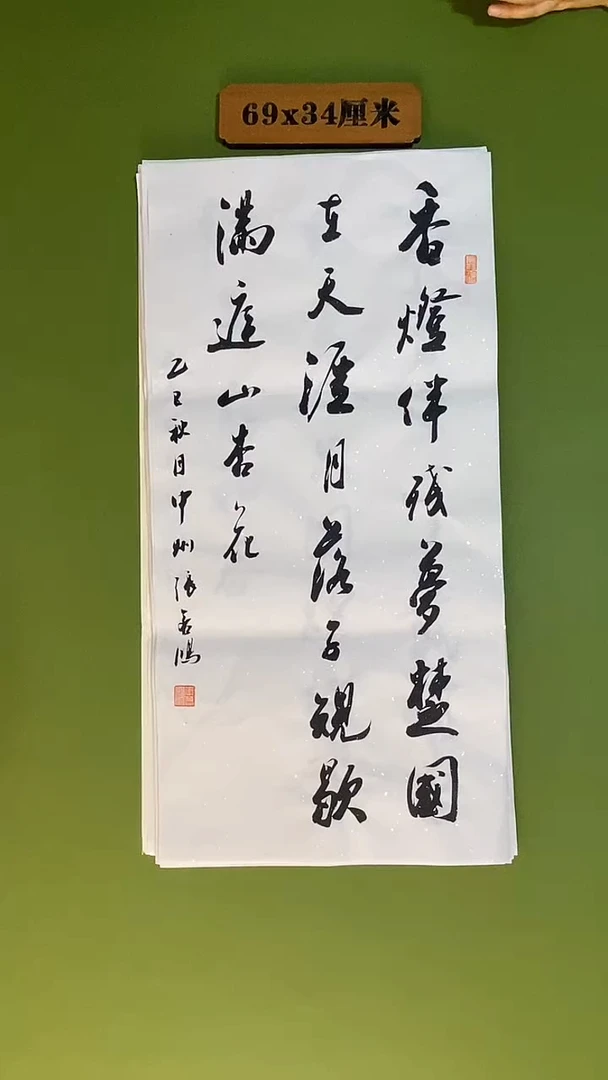 69x34厘米
香燈伴残夢楚國
在天涯月落子規歇
滿庭山杏花
乙巳秋月中州張鴻